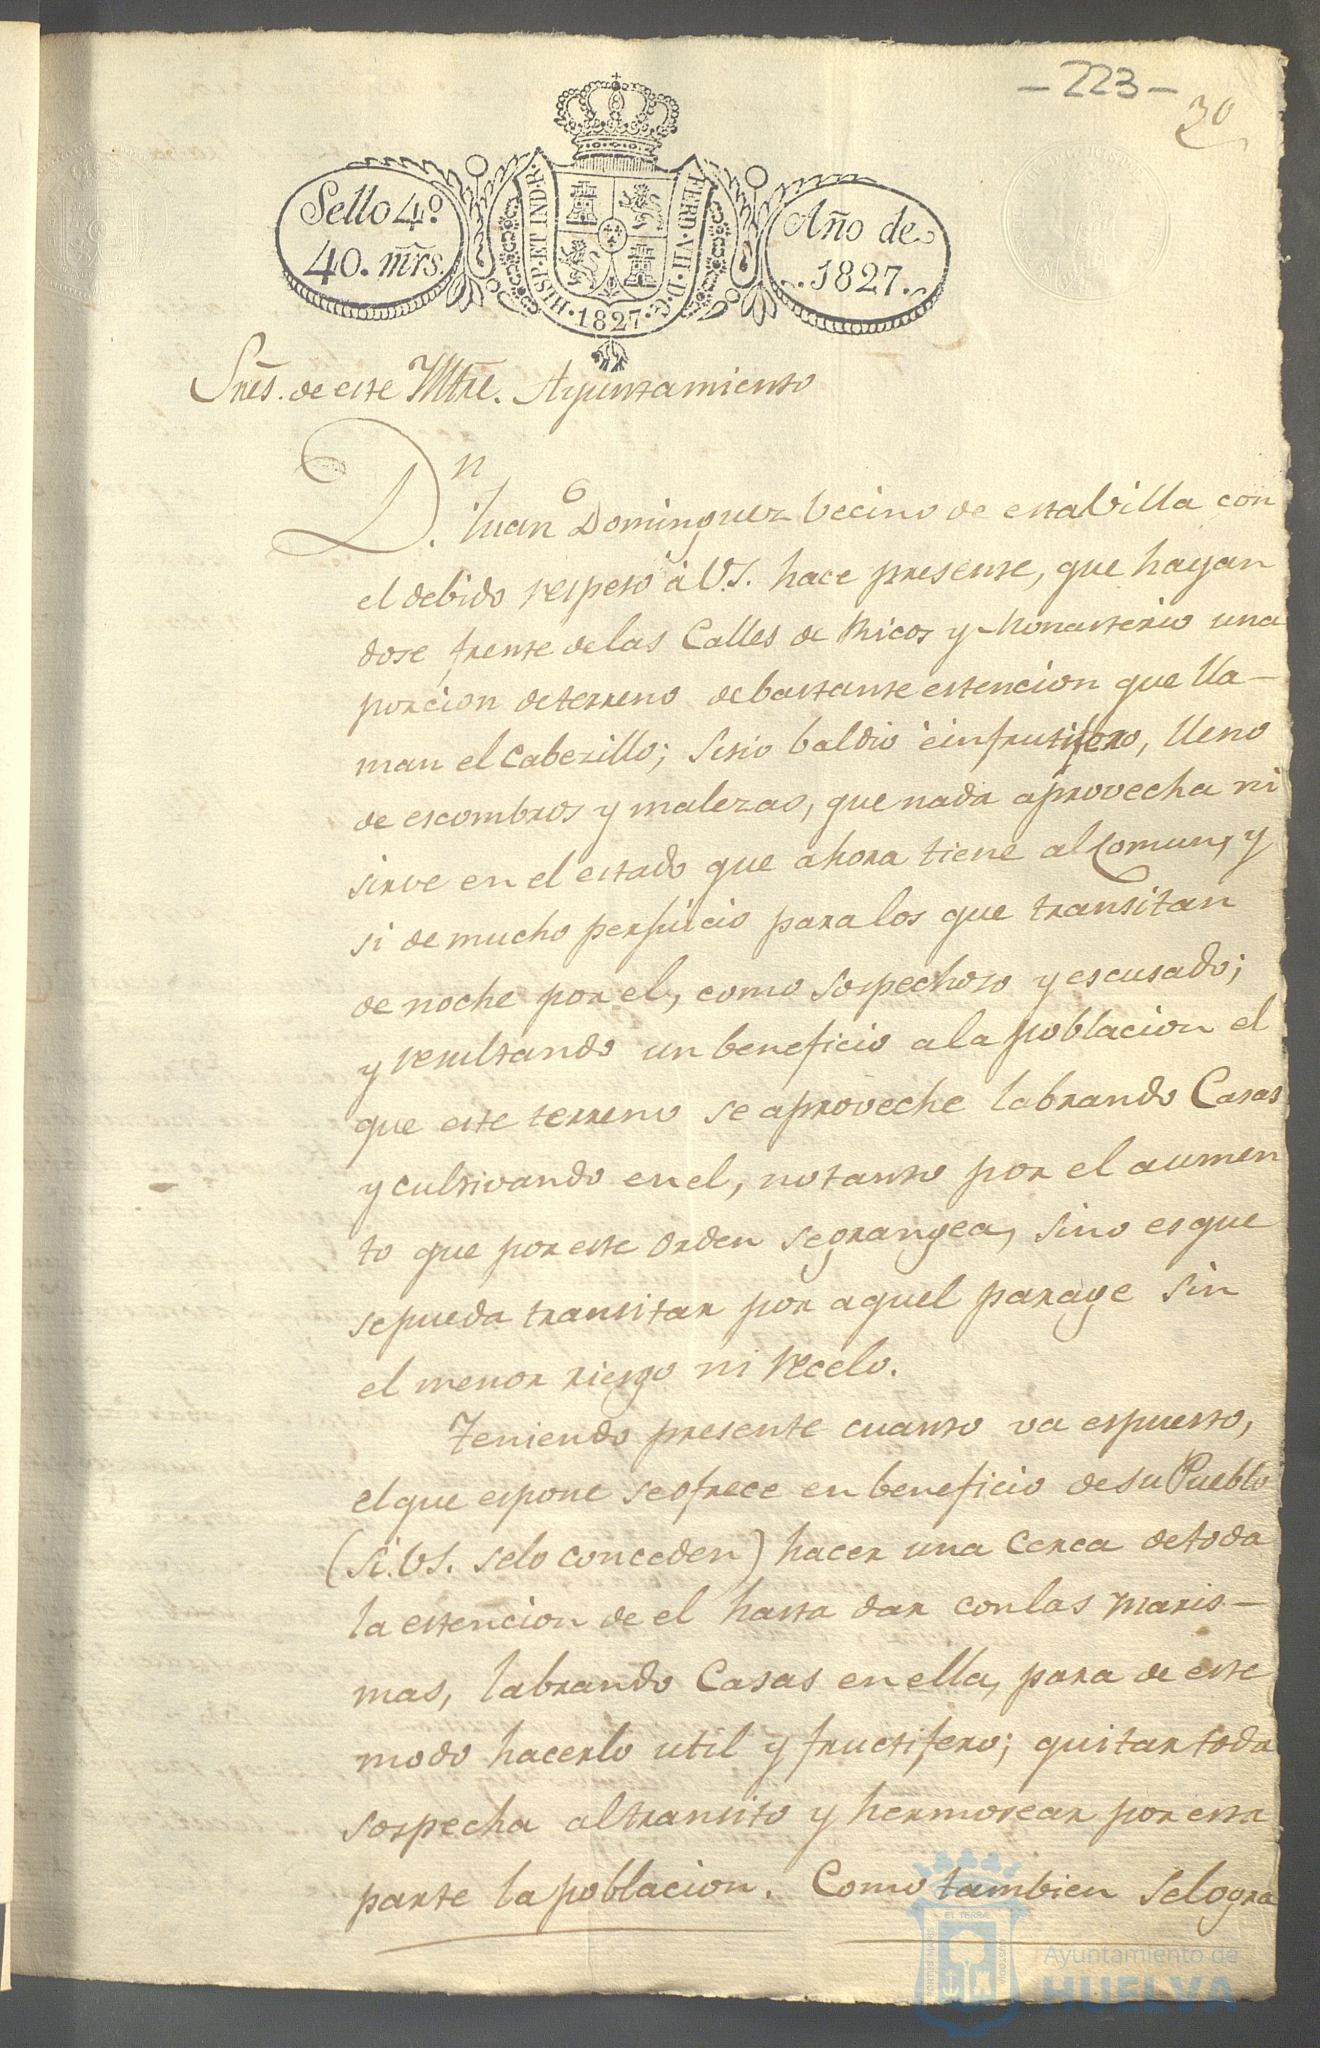 - 223 -
30
Sello 4º
40. mrs.
HISP·ET IND·R·
FERD·VII·D·G·
·1827·
Año de
1827.
Sres. de este Yltre. Ayuntamiento
Dn. Juan Dominguez Vecino de esta Villa con
el debido respeto à V.S. hace presente, que hayan
dose frente de las Calles de Ricos y Monasterio una
porcion de terreno de bastante estencion que lla-
man el Cabezillo; sitio baldio è infrutifero, lleno
de escombros y malezas, que nada aprovecha ni
sirve en el estado que ahora tiene al Comun, y
si de mucho perjuicio para los que transitan
de noche por el, como sospechoso y escusado;
y resultando un beneficio a la poblacion el
que este terreno se aproveche labrando Casas
y cultivando en el, no tanto por el aumen
to que por este orden se grangea, sino es que
se pueda transitar por aquel parage sin
el menor riesgo ni recelo.
Teniendo presente cuanto va espuesto,
el que espone se ofrece en beneficio de su Pueblo
(si. VS. se lo conceden) hacer una Cerca de toda
la estencion de el hasta dar con las maris-
mas, labrando Casas en ella, para de este
modo hacerlo util y fructifero; quitar toda
sospecha al transito y hermosear por esta
parte la poblacion. Como tambien se logra
Ayuntamiento de
HUELVA